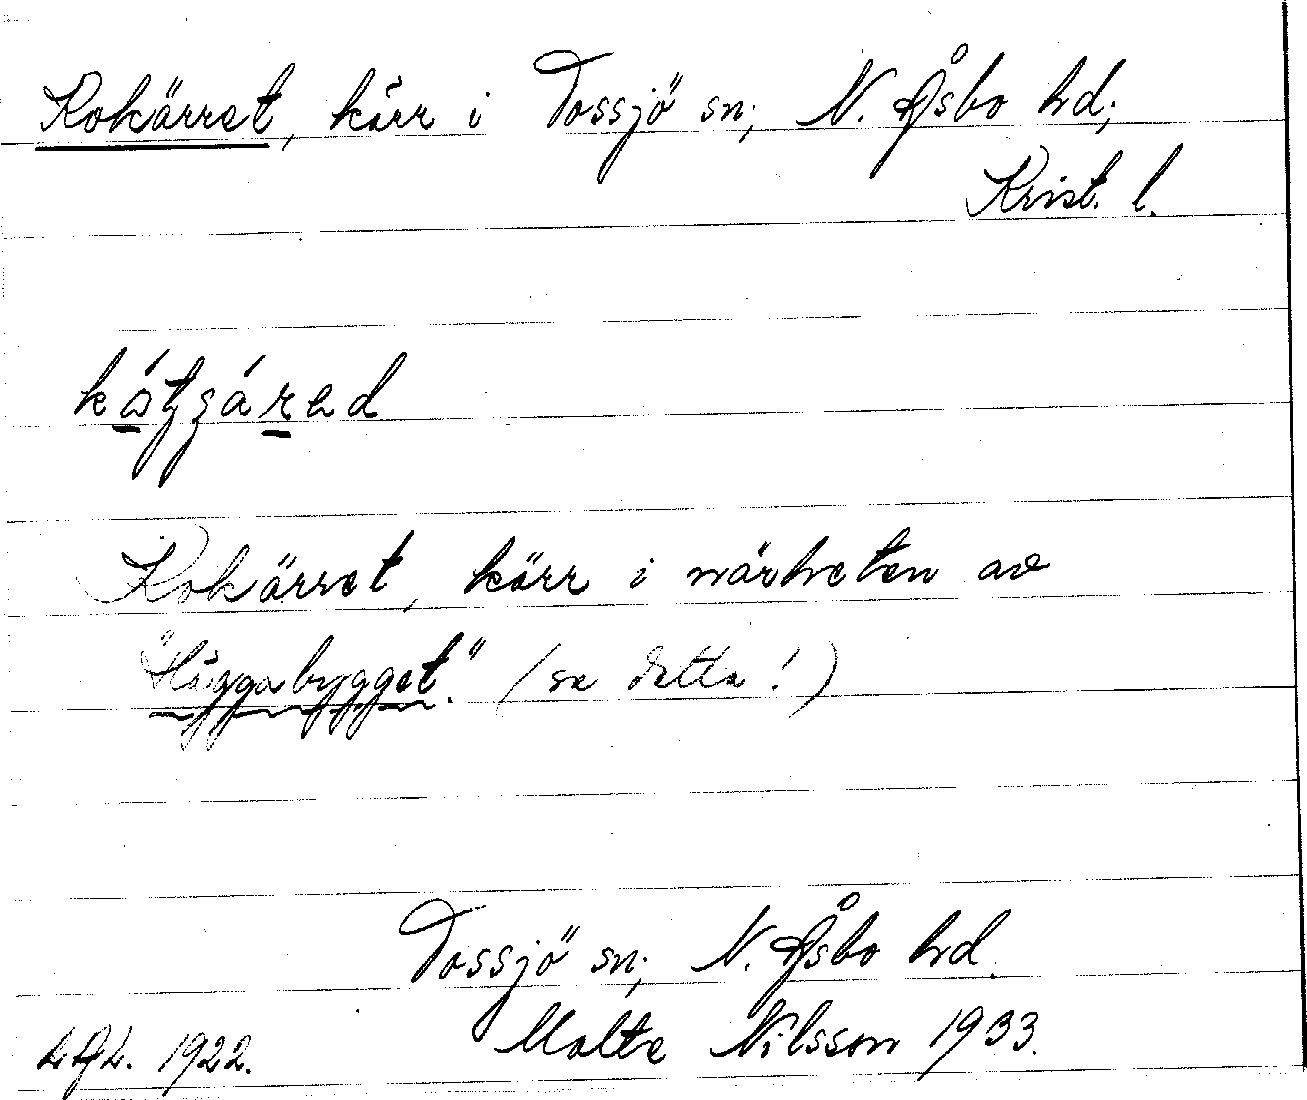 Kokärret, kärr i Tossjö sn; N. Åsbo hd;
Krist. l.
Kokärret, kärr i närheten av
"Häggabygget". (se detta!)
Tossjö sn; N. Åsbo hd.
1922. Malte Nilsson 1933.